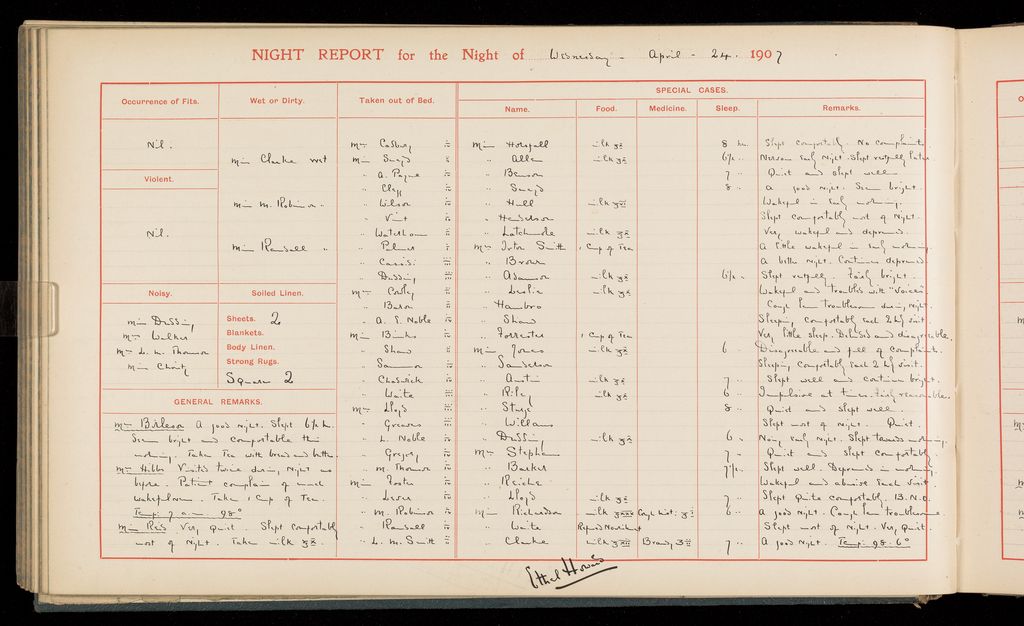 NIGHT REPORT for the Night of Wednesday - April - 24. 1907
SPECIAL CASES.
Occurrence of Fits. Wet or Dirty. Taken out of Bed. Name. Food. Medicine. Sleep. Remarks.
Nil.
Miss Clarke wet
Violent.
Miss M. Robinson "
Nil.
Miss Ransall "
Noisy. Soiled Linen.
Miss Dussing
Mrs Walker
Mrs L. M. Thomson
Miss Christy
Sheets. 2
Blankets.
Body Linen.
Strong Rugs.
Squares 2
GENERAL REMARKS.
Mrs Birleson A good night. Slept 6½ h.
Seem bright and comfortable this
morning. Taken Tea with bread and butter.
Mrs Hibbs Visited twice during night as
before. Patient complain of much
wakefulness. Taken 1 Cup of Tea.
Temp: 7 a.m. 98°
Miss Reis Very Quiet. Slept comfortably
most of Night. Taken milk
" A. Payne
" Clegg
" Wilson
" Vint
" Palmer
" Dussing
" A. E. Noble
Miss Binks
" Shaw
" Chadwick
" Waite
Mrs Lloyd
" Greaves
" L. Noble
" Gregory
" M. Thomson
Miss Foster
" Lever
" M. Robinson
" Ransall
" L. M. Smith
Miss Horsfall milk 8 hrs. Slept comfortably. No complaints.
" Allen milk 6½ " Nervous early night. Slept restfully later.
" Benson 7 " Quiet and slept well.
8 " A good night. Seem bright.
" Hull milk Wakeful in early morning.
" Henderson Slept comfortably most of Night.
Very wakeful and depressed.
Mrs Irton Smith 1 Cup of Tea A little wakeful in early morning.
" Brown A better night. Continues depressed
" Adamson milk 6½ " Slept restfully. Fairly bright.
" Leslie milk Wakeful and troubled with "Voices"
" Hambro Cough been troublesome during night.
" Shaw Sleeping comfortably each 2 hrly visit.
" Forrester 1 Cup of Tea Very little sleep. Delusions and disagreeable.
Miss Jones milk 6 Disagreeable and full of complaints.
" Sanderson Sleeping comfortably each 2 hrly visit.
" Austin milk 7 " Slept well and continues bright.
" Riley milk 6 " Impulsive at times. Fairly reasonable.
" Sturge 8 " Quiet and slept well.
" Williams Slept most of night. Quiet.
" Dussing milk 6 " Noisy early Night. Slept towards morning.
Mrs Stephens 7 " Quiet and slept comfortably
" Barker 7½ " Slept well. Depressed in morning.
" Reiche Wakeful and abusive each visit
" Lloyd milk 7 " Slept quite comfortably. B.N.O.
Miss Richardson milk Cough Mist: 6 " A good Night. Cough been troublesome.
" Waite Refused Nourishment Slept most of night. Very quiet.
" Clarke milk Brandy 7 " A good night. Temp: 98.6°
Ethel Howard